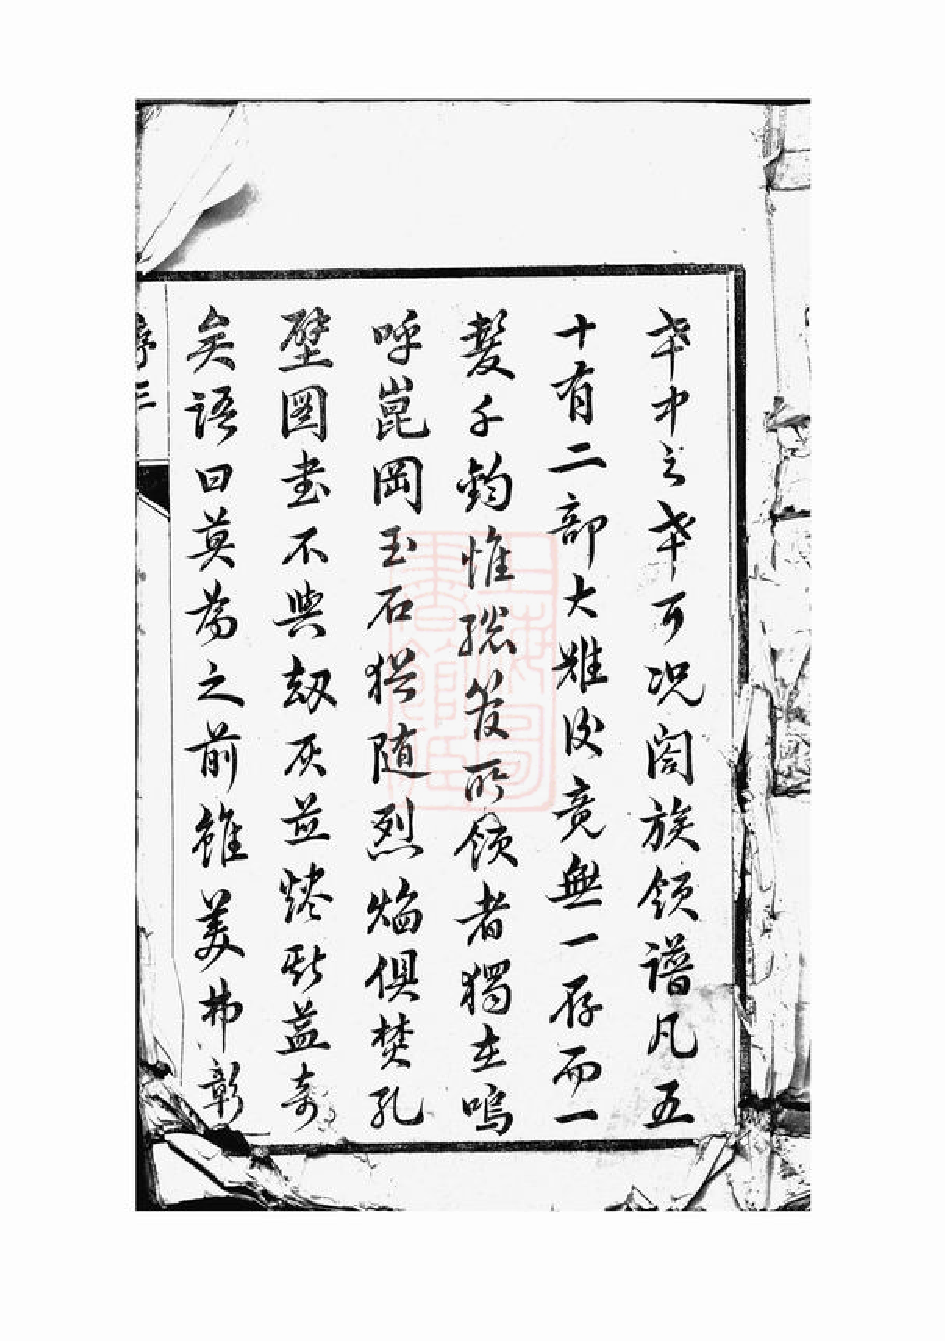 幸中之幸耳況閤族領譜凡五
十有二部大難後竟無一存而一
髮千鈞惟總笈所領者獨在嗚
呼崑岡玉石猶随烈焰俱焚孔
壁圖書不與劫灰並燼斯益奇
矣語曰莫為之前雖美弗彰
序 三
上海圖書館藏